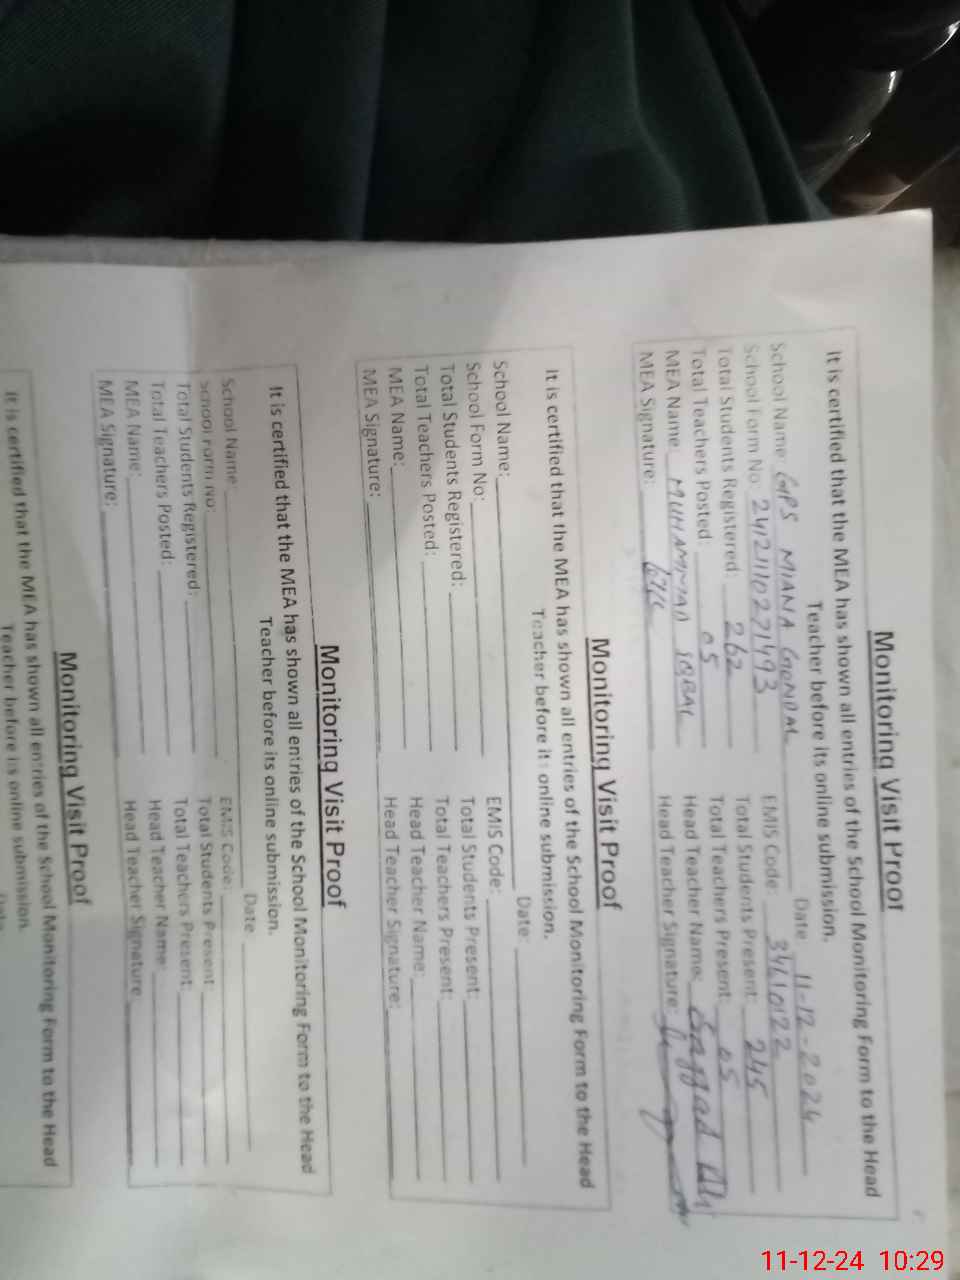 Monitoring Visit Proof
It is certified that the MEA has shown all entries of the School Monitoring Form to the Head
Teacher before its online submission.
Date 11-12-2024
School Name GPS MIANA GONDAL
School Form No 24121110271493 EMIS Code: 34110122
Total Students Registered: 262 Total Students Present: 245
Total Teachers Posted: 05 Total Teachers Present: 05
MEA Name: MUHAMMAD IQBAL Head Teacher Name: Sajjad Ali
MEA Signature: Head Teacher Signature:
Monitoring Visit Proof
It is certified that the MEA has shown all entries of the School Monitoring Form to the Head
Teacher before its online submission.
Date:
School Name: EMIS Code:
School Form No: Total Students Present:
Total Students Registered: Total Teachers Present:
Total Teachers Posted: Head Teacher Name:
MEA Name: Head Teacher Signature:
MEA Signature:
Monitoring Visit Proof
It is certified that the MEA has shown all entries of the School Monitoring Form to the Head
Teacher before its online submission.
Date
School Name EMIS Code:
School Form No: Total Students Present:
Total Students Registered: Total Teachers Present:
Total Teachers Posted: Head Teacher Name:
MEA Name: Head Teacher Signature
MEA Signature:
Monitoring Visit Proof
It is certified that the MEA has shown all entries of the School Monitoring Form to the Head
Teacher before its online submission.
Date
11-12-24 10:29